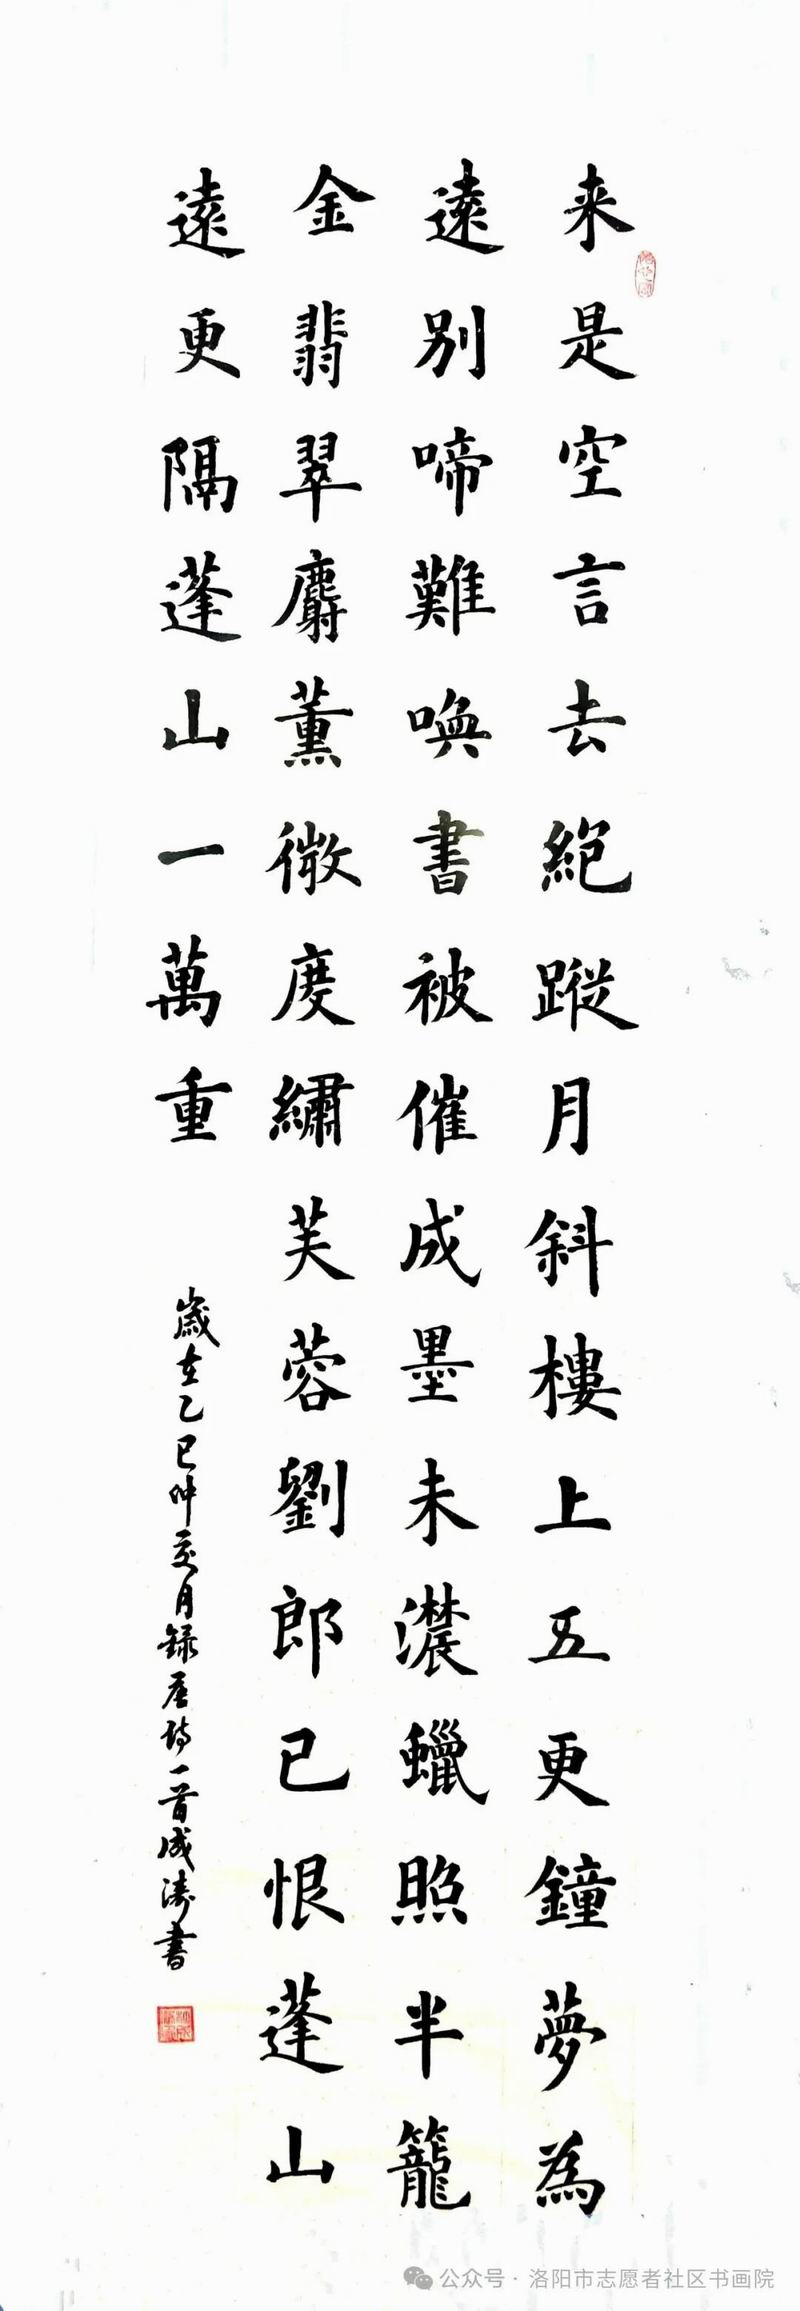 来是空言去絕蹤月斜樓上五更鐘夢為
遠別啼難喚書被催成墨未濃蠟照半籠
金翡翠麝薰微度繡芙蓉劉郎已恨蓬山
遠更隔蓬山一萬重
歲在乙巳仲夏月錄唐詩一首成濤書
公众号·洛阳市志愿者社区书画院